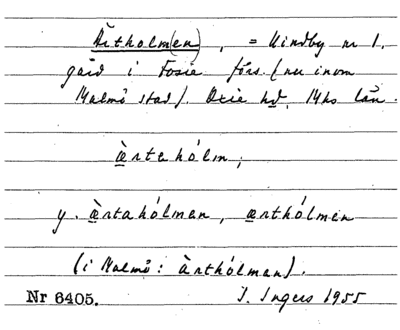 Ärtholm(en), = Hindby nr 1.
gård i Fosie förs. (nu inom
Malmö stad). Oxie hd, Mhs län.
æ̀rtahólm;
y. æ̀rtahólmen, ærthólmen
(i Malmö: Àrthólman).
Nr 6405. I. Ingers 1955